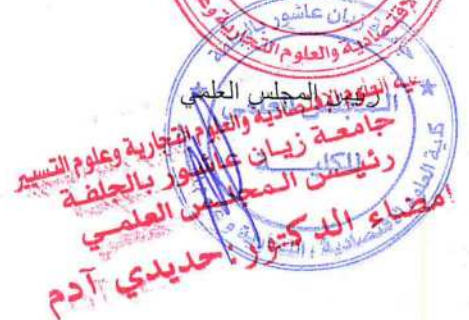 زيان عاشور
الاقتصادية والعلوم التجارية
رئيس المجلس العلمي
كلية العلوم الاقتصادية والعلوم التجارية وعلوم التسيير
جامعة زيان عاشور بالجلفة
رئيس المجلس العلمي
إمضاء الدكتور: حديدي آدم
المجلس العلمي
للكلية
كلية العلوم